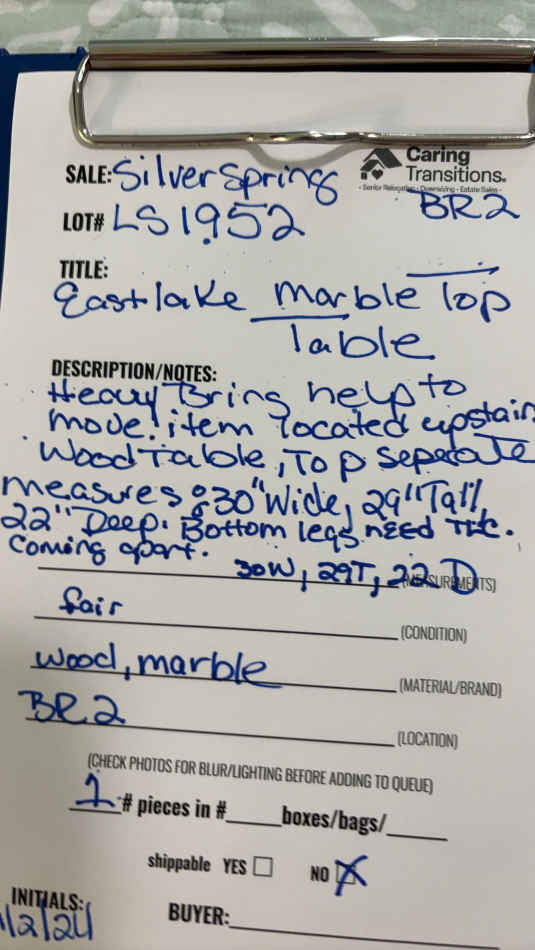 Caring
SALE: Silver Spring
Transitions.
- Senior Relocation - Downsizing - Estate Sales -
BR2
LOT# LS1952
TITLE:
Eastlake Marble Top
Table
DESCRIPTION/NOTES:
Heavy Bring help to
move! item located upstairs
Wood Table, Top separate
measures: 30" Wide, 29" Tall,
22" Deep. Bottom legs need TLC.
Coming apart.
30W, 29T, 22D (MEASUREMENTS)
fair (CONDITION)
wood, marble (MATERIAL/BRAND)
BR2 (LOCATION)
(CHECK PHOTOS FOR BLUR/LIGHTING BEFORE ADDING TO QUEUE)
1 # pieces in # boxes/bags/
shippable YES NO X
INITIALS:
BUYER: